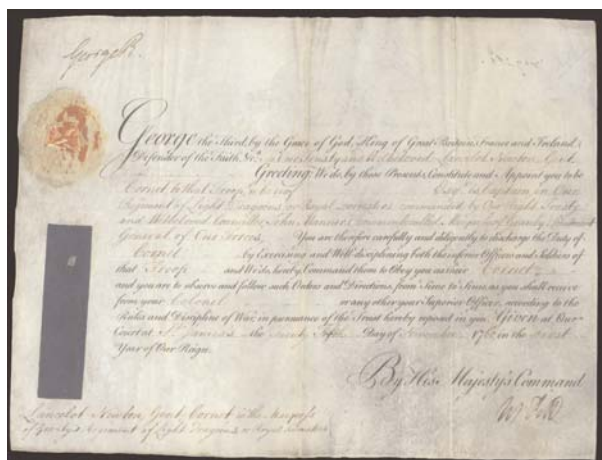 George R.
George the Third, by the Grace of God, King of Great Britain, France and Ireland,
Defender of the Faith &c. To Our Trusty and Wellbeloved Lancelot Newton Gent.
Greeting: We do, by these Presents, Constitute and Appoint you to be
Cornet to that Troop Esqr. is Captain in Our
Regiment of Light Dragoons or Royal commanded by Our Right Trusty
and Wellbeloved Councillor John Manners commonly called Marquess of Granby Lieutenant
General of Our Forces, You are therefore carefully and diligently to discharge the Duty of
Cornet by Exercising and Well disciplining both the inferior Officers and Soldiers of
that Troop and We do hereby Command them to Obey you as their Cornet
and you are to observe and follow such Orders and Directions, from Time to Time, as you shall receive
from your Colonel or any other your Superior Officer, according to the
Rules and Discipline of War, in pursuance of the Trust hereby reposed in you. Given at Our
Court at St. James's the Fifth Day of November 176 in the
Year of Our Reign.
By His Majesty's Command
Lancelot Newton Gent. Cornet in the Marquess
of Granby's Regiment of Light Dragoons or Royal